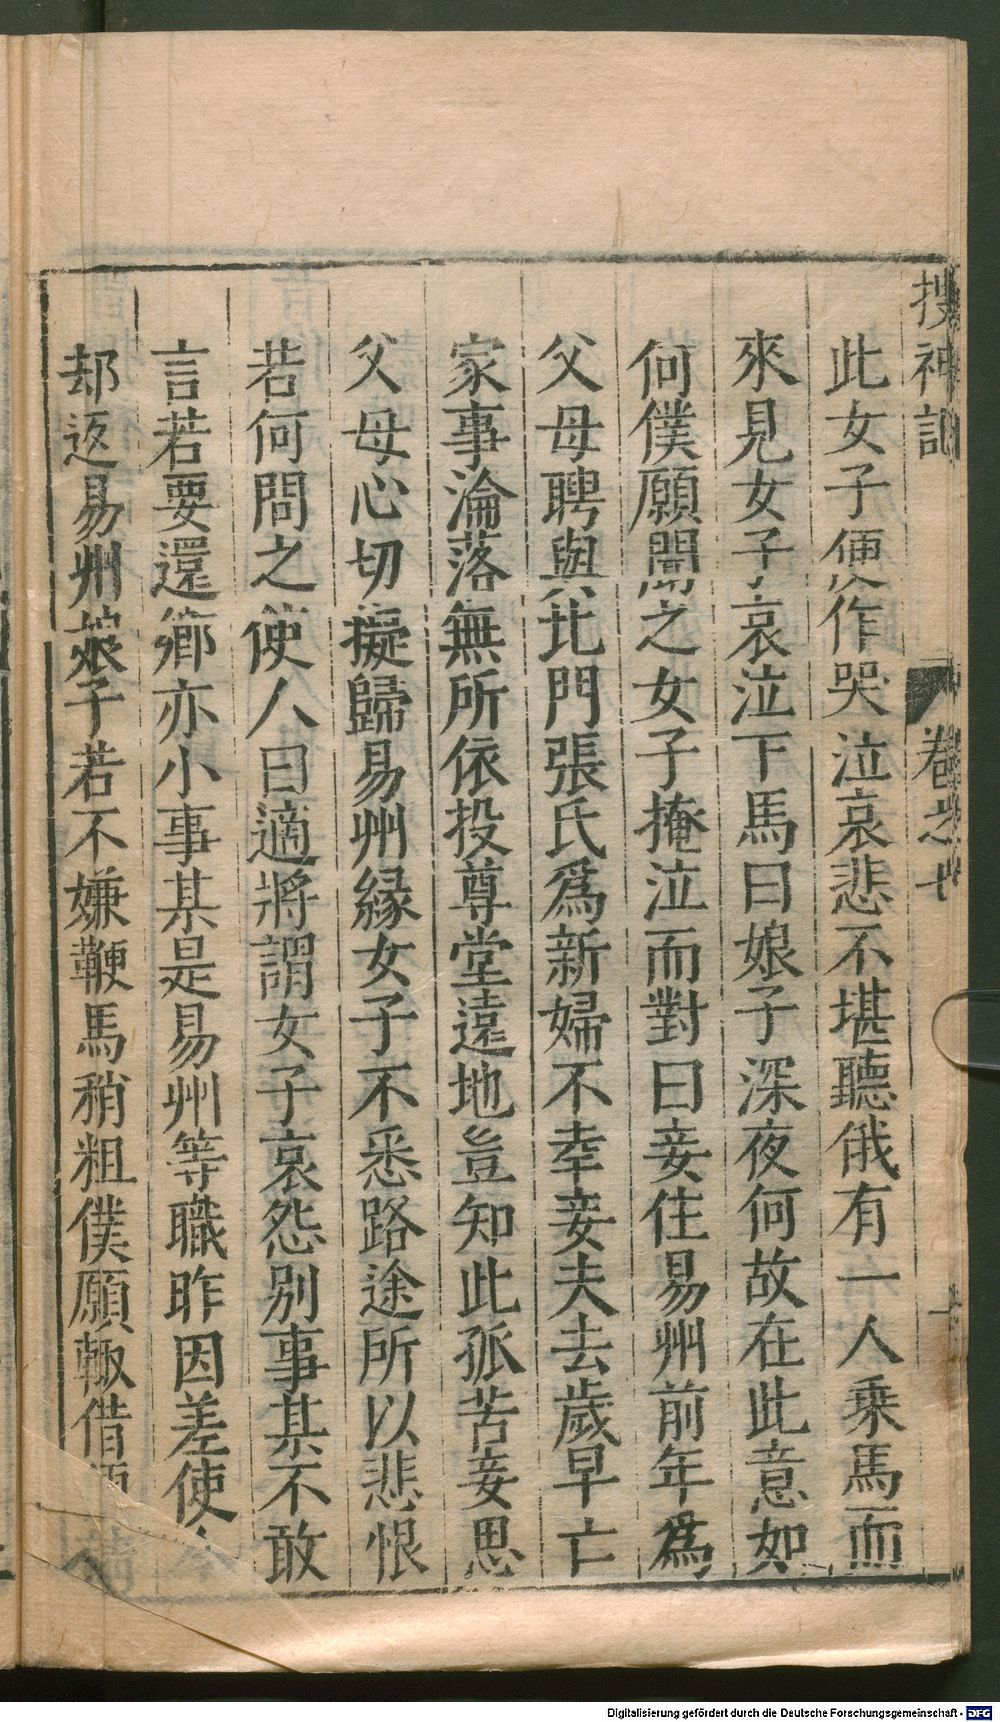 搜神記
卷之七
此女子便作哭泣哀悲不堪聽俄有一人乘馬而
來見女子哀泣下馬曰娘子深夜何故在此意如
何僕願聞之女子掩泣而對曰妾住易州前年爲
父母聘與北門張氏爲新婦不幸妾夫去歲早亡
家事淪落無所依投尊堂遠地豈知此孤苦妾思
父母心切擬歸易州緣女子不悉路途所以悲恨
若何問之使人曰適將謂女子哀怨別事某不敢
言若要還鄉亦小事某是易州等職昨因差使
却返易州娘子若不嫌鞭馬稍粗僕願輙借
Digitalisierung gefördert durch die Deutsche Forschungsgemeinschaft - DFG